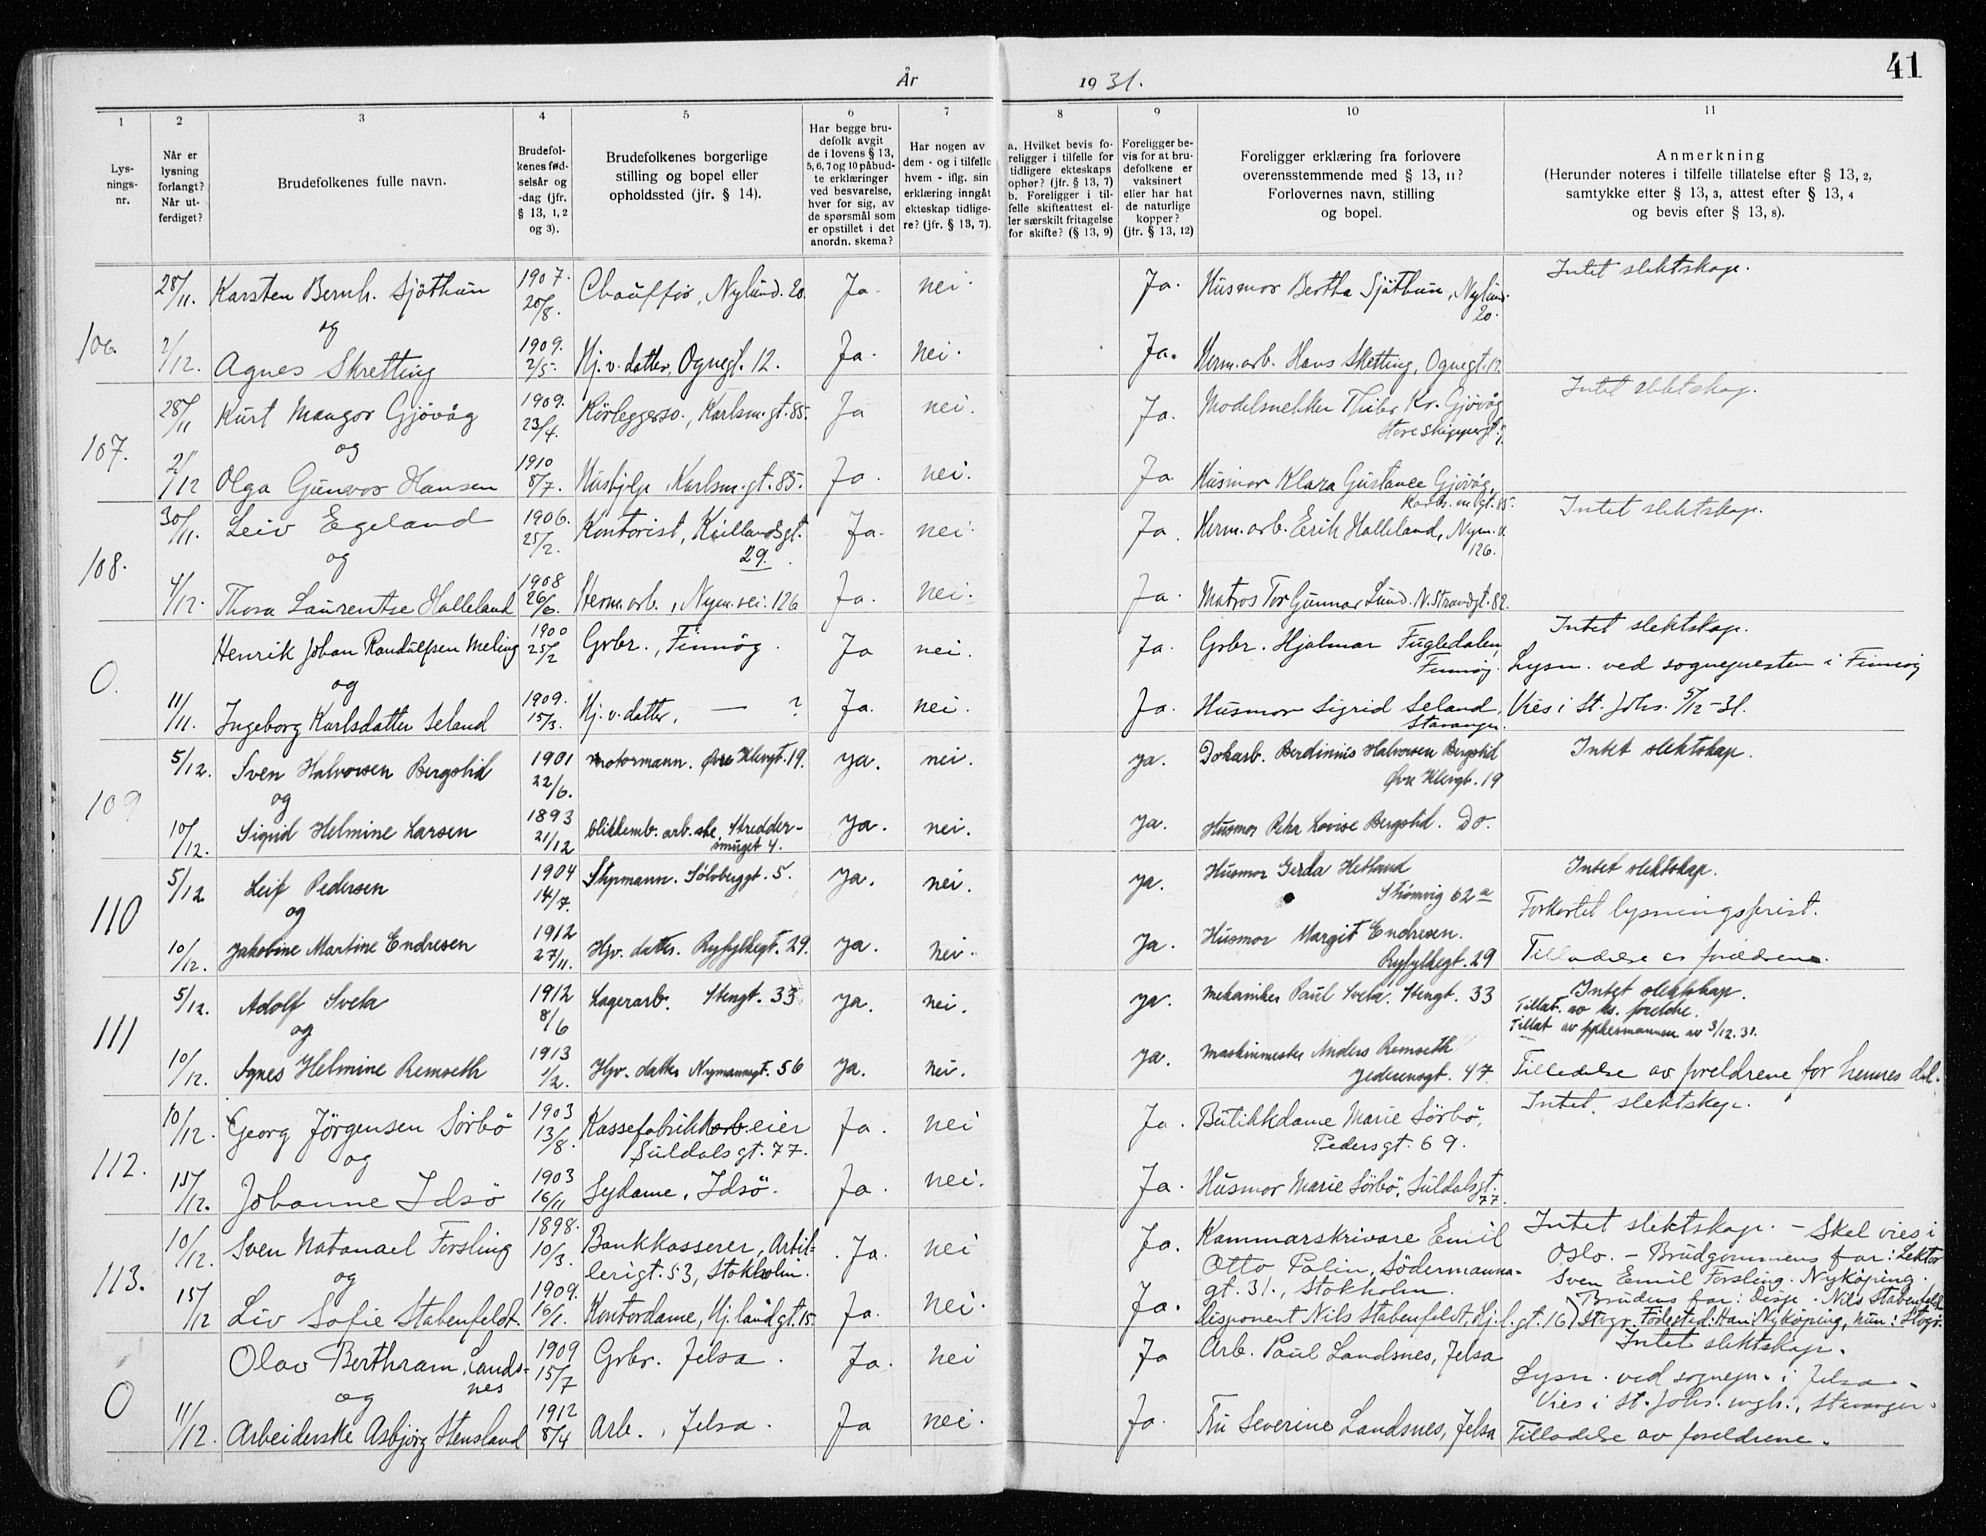 41
År 1931.
1 2 3 4 5 6 7 8 9 10 11
Lys-
nings-
nr.
Når er
lysning
forlangt?
Når ut-
ferdiget?
Brudefolkenes fulle navn.
Brudefol-
kenes fød-
selsår og
-dag (jfr.
§ 13, 1, 2
og 3).
Brudefolkenes borgerlige
stilling og bopel eller
opholdssted (jfr. § 14).
Har begge bru-
defolk avgit
de i lovens § 13,
5, 6, 7 og 10 påbud-
te erklæringer
ved besvarelse,
hver for sig, av
de spørsmål som
er opstillet i det
anordn. skema?
Har nogen av
dem - og i tilfelle
hvem - iflg. sin
erklæring inngått
ekteskap tidlige-
re? (jfr. § 13, 7).
a. Hvilket bevis fo-
religger i tilfelle for
tidligere ekteskaps
ophør? (jfr. § 13, 7)
b. Foreligger i til-
felle skifteattest el-
ler særskilt fritagelse
for skifte? (§ 13, 9)
Foreligger be-
vis for at bru-
defolkene er
vaksinert
eller har hat
de naturlige
kopper?
(jfr. § 13, 12)
Foreligger erklæring fra forlovere
overensstemmende med § 13, 11?
Forlovernes navn, stilling
og bopel.
Anmerkning
(Herunder noteres i tilfelle tillatelse efter § 13, 2,
samtykke efter § 13, 3, attest efter § 13, 4
og bevis efter § 13, 8).
106. 28/11. Karsten Bernh. Sjöthun 1907. 20/8. Chauffør, Nylund. 20. Ja. nei. Ja. Husmor Bertha Sjöthun, Nylund. 20. Intet slektskap.
og
2/12. Agnes Skretting 1909. 2/5. Hj. v. datter, Ognegt. 12. Ja. nei. Ja. Herm. arb. Hans Sketting, Ognegt. 12
107. 28/11 Kurt Mangor Gjövåg 1909. 23/4. Rörleggersv., Karlsm. gt. 85. Ja nei. Ja. Modelsnekker Thilor Kr. Gjövåg Store Skippergt. Intet slektskap.
og
2/12 Olga Gunvor Hansen 1910 8/7. Hushjelp, Karlsm. gt. 85. Ja. nei. Ja. Husmor Klara Gustava Gjövåg, Karls. m. gt. 85.
108. 30/11. Leiv Egeland 1906. 25/2. Kontorist, Kiellandsgt. 29. Ja. nei. Ja. Herm. arb. Erik Halleland, Nym. v. 126. Intet slektskap.
og
4/12. Thora Laurentse Halleland 1908 26/6. Herm. arb., Nym. vei. 126 Ja. nei. Ja. Matros Tor Gunnar Lund. N. Strandgt. 82.
0. Henrik Johan Randulfsen Meling 1900 25/2 Grbr., Finnöy. Ja nei. Ja. Grbr. Hjalmar Fugledalen, Finnöy. Intet slektskap.
Lysn. ved sognepresten i Finnöy
og
11/11. Ingeborg Karlsdatter Seland 1909. 15/3. Hj. v. datter, — ? Ja. nei. Ja. Husmor Sigrid Seland, Stavanger. Vies i St. Johs. 5/12 - 31.
109 5/12. Sven Halvorsen Bergslid 1901 22/6. motormann. Øvre Klevgt. 19. ya. nei. ya. Dokarb. Berdinius Halvorsen Bergslid Øvre Klevgt. 19 Intet slektskap.
og
10/12. Sigrid Helmine Larsen 1893 21/12 blikkemb. arb. ske. Skredder- smuget 4. ya. nei. ya. Husmor Petra Lovise Bergslid. Do.
110 5/12 Leif Pedersen 1904 14/7. Stymann. Sölvberggt. 5. ya. nei. ya. Husmor Gerda Hetland Strömvig 62 a Intet slektskap.
Forkortet lysningsfrist.
og
10/12. Jakobine Martine Endresen 1912 27/11. Hjv. datter. Ryfylkegt. 29. ya. nei. ya. Husmor Margit Endresen. Ryfylkegt. 29 Tilladelse av foreldrene.
111 5/12. Adolf Sveta 1912 8/6 Lagerarb. Stengt. 33 ya. nei. ya. mekaniker Paul Sveta. Stengt. 33 Intet slektskap.
Tillat. av hs. foreldre.
Tillat av fylkesmannen av 3/12. 31.
og
10/12. Agnes Helmine Remseth 1913 1/2. Hjv. datter Nymannsgt. 56 ya. nei. ya. maskinmester Anders Remseth Jedarensgt. 47. Tilladelse av foreldrene for hennes del.
112. 10/12. Georg Jörgensen Sörbö 1903 13/8. Kassefabrikkarbeier Suldalsgt. 77. Ja. nei Ja. Butikkdame Marie Sörbö, Pedersgt. 69. Intet slektskap.
og
15/12. Johanne Idsö 1903 16/11 Sydame, Idsö. Ja. nei. Ja. Husmor Marie Sörbö, Suldalsgt. 77.
113. 10/12. Sven Natanael Forsling 1898. 10/3. Bankkasserer, Artil- lerigt. 53, Stokholm. Ja. nei Ja. Kammarskrivare Emil Otto Palin, Södermanna- gt. 31., Stokholm. Intet slektskap. - Skal vies i
Oslo. - Brudgommens far: Lektor
Sven Emil Forsling. Nyköping.
og
15/12 Liv Sofie Stabenfeldt 1909. 16/1. Kontordame, Hj. landgt. 15. Ja. nei. Ja. Disponent Nils Stabenfeldt, Hj. l. gt. 16 Brudens far: Disp. Nils Stabenfeldt
Stvgr. Födested: Han: Nyköping, hun: Stvgr.
0 Olav Berthram Lands- nes 1909 15/7 Grbr. Jelsa. Ja. nei Ja Arb. Paul Landsnes, Jelsa Intet slektskap.
Lysn. ved sognepr. i Jelsa.
og
11/12. Arbeiderske Asbjörg Stensland 1912 8/4 Arb., Jelsa. Ja nei. Ja. Fru Severine Landsnes, Jelsa Vies i St. Johs. mgh., Stavanger.
Tilladelse av foreldrene.